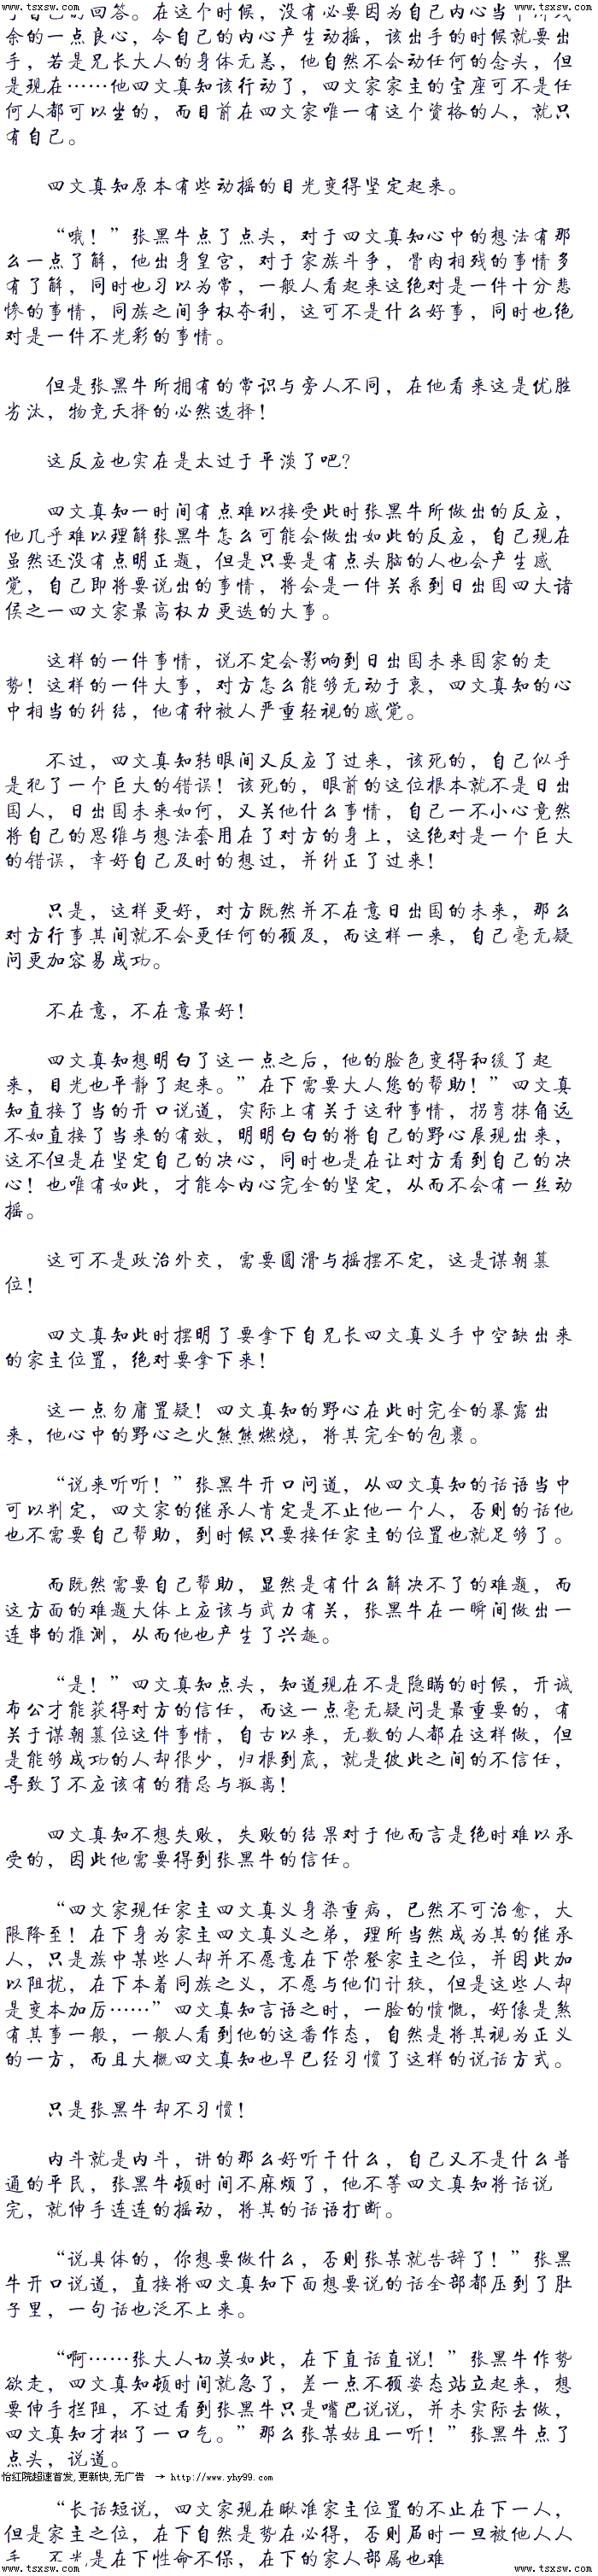 www.tsxsw.com www.tsxsw.com
自己的回答。在这个时候，没有必要因为自己内心当中
余的一点良心，令自己的内心产生动摇，该出手的时候就要出
手，若是兄长大人的身体无恙，他自然不会动任何的念头，但
是现在……他四文真知该行动了，四文家家主的宝座可不是任
何人都可以坐的，而目前在四文家唯一有这个资格的人，就只
有自己。
四文真知原本有些动摇的目光变得坚定起来。
“哦！”张黑牛点了点头，对于四文真知心中的想法有那
么一点了解，他出身皇宫，对于家族斗争，骨肉相残的事情多
有了解，同时也习以为常，一般人看起来这绝对是一件十分悲
惨的事情，同族之间争权夺利，这可不是什么好事，同时也绝
对是一件不光彩的事情。
但是张黑牛所拥有的常识与旁人不同，在他看来这是优胜
劣汰，物竞天择的必然选择！
这反应也实在是太过于平淡了吧？
四文真知一时间有点难以接受此时张黑牛所做出的反应，
他几乎难以理解张黑牛怎么可能会做出如此的反应，自己现在
虽然还没有点明正题，但是只要是有点头脑的人也会产生感
觉，自己即将要说出的事情，将会是一件关系到日出国四大诸
侯之一四文家最高权力更迭的大事。
这样的一件事情，说不定会影响到日出国未来国家的走
势！这样的一件大事，对方怎么能够无动于衷，四文真知的心
中相当的纠结，他有种被人严重轻视的感觉。
不过，四文真知转眼间又反应了过来，该死的，自己似乎
是犯了一个巨大的错误！该死的，眼前的这位根本就不是日出
国人，日出国未来如何，又关他什么事情，自己一不小心竟然
将自己的思维与想法套用在了对方的身上，这绝对是一个巨大
的错误，幸好自己及时的想过，并纠正了过来！
只是，这样更好，对方既然并不在意日出国的未来，那么
对方行事其间就不会更任何的顾及，而这样一来，自己毫无疑
问更加容易成功。
不在意，不在意最好！
四文真知想明白了这一点之后，他的脸色变得和缓了起
来，目光也平静了起来。”在下需要大人您的帮助！”四文真
知直接了当的开口说道，实际上有关于这种事情，拐弯抹角远
不如直接了当来的有效，明明白白的将自己的野心展现出来，
这不但是在坚定自己的决心，同时也是在让对方看到自己的决
心！也唯有如此，才能令内心完全的坚定，从而不会有一丝动
摇。
这可不是政治外交，需要圆滑与摇摆不定，这是谋朝篡
位！
四文真知此时摆明了要拿下自兄长四文真义手中空缺出来
的家主位置，绝对要拿下来！
这一点勿庸置疑！四文真知的野心在此时完全的暴露出
来，他心中的野心之火熊熊燃烧，将其完全的包裹。
“说来听听！”张黑牛开口问道，从四文真知的话语当中
可以判定，四文家的继承人肯定是不止他一个人，否则的话他
也不需要自己帮助，到时候只要接任家主的位置也就足够了。
而既然需要自己帮助，显然是有什么解决不了的难题，而
这方面的难题大体上应该与武力有关，张黑牛在一瞬间做出一
连串的推测，从而他也产生了兴趣。
“是！”四文真知点头，知道现在不是隐瞒的时候，开诚
布公才能获得对方的信任，而这一点毫无疑问是最重要的，有
关于谋朝篡位这件事情，自古以来，无数的人都在这样做，但
是能够成功的人却很少，归根到底，就是彼此之间的不信任，
导致了不应该有的猜忌与叛离！
四文真知不想失败，失败的结果对于他而言是绝时难以承
受的，因此他需要得到张黑牛的信任。
“四文家现任家主四文真义身染重病，已然不可治愈，大
限降至！在下身为家主四文真义之弟，理所当然成为其的继承
人，只是族中某些人却并不愿意在下荣登家主之位，并因此加
以阻扰，在下本着同族之义，不愿与他们计较，但是这些人却
是变本加厉……”四文真知言语之时，一脸的愤慨，好像是煞
有其事一般，一般人看到他的这番作态，自然是将其视为正义
的一方，而且大概四文真知也早已经习惯了这样的说话方式。
只是张黑牛却不习惯！
内斗就是内斗，讲的那么好听干什么，自己又不是什么普
通的平民，张黑牛顿时间不麻烦了，他不等四文真知将话说
完，就伸手连连的摇动，将其的话语打断。
“说具体的，你想要做什么，否则张某就告辞了！”张黑
牛开口说道，直接将四文真知下面想要说的话全部都压到了肚
子里，一句话也泛不上来。
“啊……张大人切莫如此，在下直话直说！”张黑牛作势
欲走，四文真知顿时间就急了，差一点不顾姿态站立起来，想
要伸手拦阻，不过看到张黑牛只是嘴巴说说，并未实际去做，
四文真知才松了一口气。”那么张某姑且一听！”张黑牛点了
点头，说道。
怡红院超速首发,更新快,无广告 → http://www.yhy99.com
“长话短说，四文家现在瞅准家主位置的不止在下一人，
但是家主之位，在下自然是势在必得，否则届时一旦被他人入
手，不光是在下性命不保，在下的家人部属也难
www.tsxsw.com www.tsxsw.com